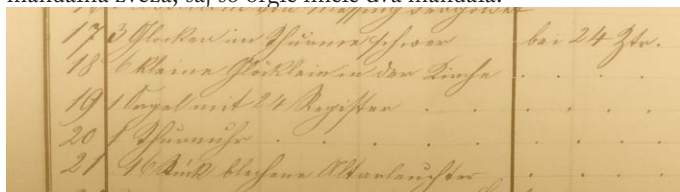 manualna zveza, saj so orgle imele dva manuala.
Messing vergoldet
17 3 Glocken im Thurme schwer bei 24 Ztr.
18 6 kleine Glöcklein in der Kirche . . . .
19 1 Orgel mit 24 Register . . . . . .
20 1 Thurmuhr . . . . . . . .
21 16 Stück blechene Altarleuchter . . . . .